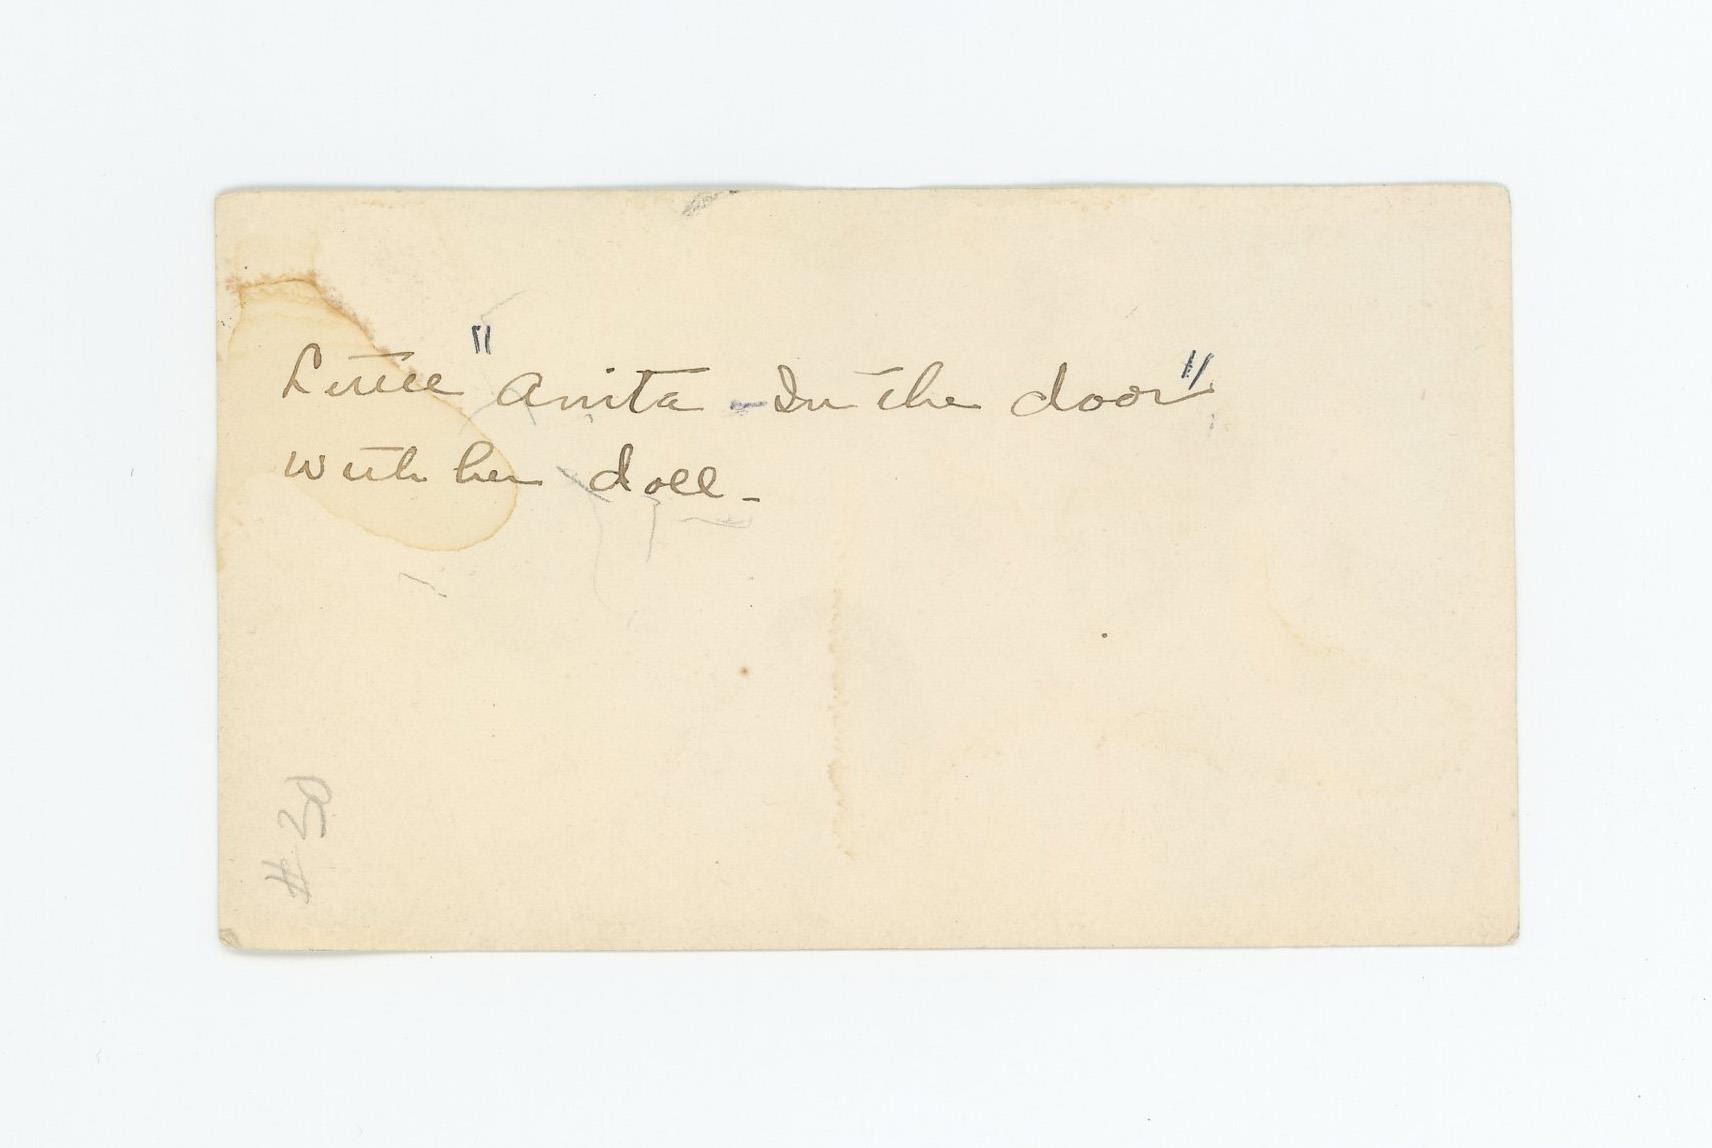 Little "Anita - In the door"
with her doll -
# 30